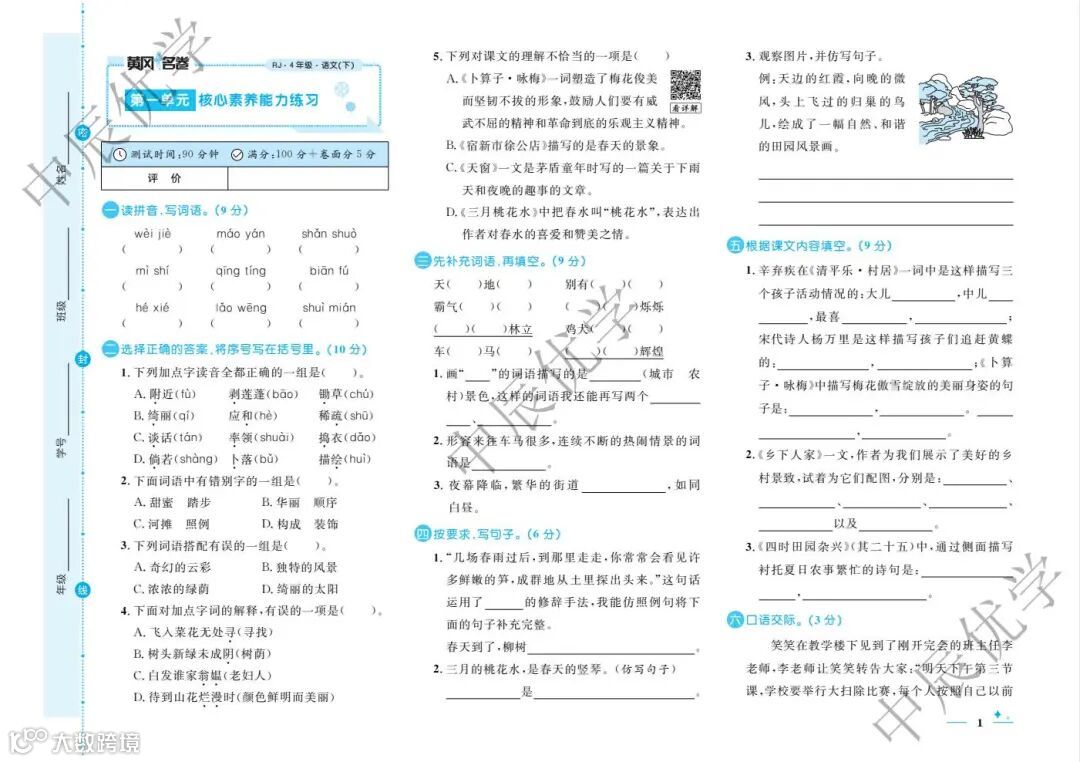 黄冈名卷
RJ·4年级·语文(下)
第一单元 核心素养能力练习
测试时间:90分钟 满分:100分+卷面分5分
评 价
姓名
班级
学号
年级
密
封
线
一 读拼音,写词语。(9分)
wèi jiè máo yán shǎn shuò
( ) ( ) ( )
mì shí qīng tíng biān fú
( ) ( ) ( )
hé xié lǎo wēng shuì mián
( ) ( ) ( )
二 选择正确的答案,将序号写在括号里。(10分)
1. 下列加点字读音全都正确的一组是( )。
A. 附近(fù) 剥莲蓬(bāo) 锄草(chú)
B. 绮丽(qí) 应和(hè) 稀疏(shū)
C. 谈话(tán) 率领(shuài) 捣衣(dǎo)
D. 倘若(shàng) 卜落(bǔ) 描绘(huì)
2. 下面词语中有错别字的一组是( )。
A. 甜蜜 踏步 B. 华丽 顺序
C. 河摊 照例 D. 构成 装饰
3. 下列词语搭配有误的一组是( )。
A. 奇幻的云彩 B. 独特的风景
C. 浓浓的绿荫 D. 绮丽的太阳
4. 下面对加点字词的解释,有误的一项是( )。
A. 飞入菜花无处寻(寻找)
B. 树头新绿未成阴(树荫)
C. 白发谁家翁媪(老妇人)
D. 待到山花烂漫时(颜色鲜明而美丽)
5. 下列对课文的理解不恰当的一项是( )
A.《卜算子·咏梅》一词塑造了梅花俊美
而坚韧不拔的形象,鼓励人们要有威
武不屈的精神和革命到底的乐观主义精神。
看详解
B.《宿新市徐公店》描写的是春天的景象。
C.《天窗》一文是茅盾童年时写的一篇关于下雨
天和夜晚的趣事的文章。
D.《三月桃花水》中把春水叫“桃花水”,表达出
作者对春水的喜爱和赞美之情。
三 先补充词语,再填空。(9分)
天( )地( ) 别有( )( )
霸气( )( ) ( )( )烁烁
( )( )林立 鸡犬( )( )
车( )马( ) ( )( )辉煌
1. 画“____”的词语描写的是________(城市 农
村)景色,这样的词语我还能再写两个________
________、________。
2. 形容来往车马很多,连续不断的热闹情景的词
语是____________。
3. 夜幕降临,繁华的街道____________,如同
白昼。
四 按要求,写句子。(6分)
1.“几场春雨过后,到那里走走,你常常会看见许
多鲜嫩的笋,成群地从土里探出头来。”这句话
运用了______的修辞手法,我能仿照例句将下
面的句子补充完整。
春天到了,柳树____________________。
2. 三月的桃花水,是春天的竖琴。(仿写句子)
____________是____________________。
3. 观察图片,并仿写句子。
例:天边的红霞,向晚的微
风,头上飞过的归巢的鸟
儿,绘成了一幅自然、和谐
的田园风景画。
五 根据课文内容填空。(9分)
1. 辛弃疾在《清平乐·村居》一词中是这样描写三
个孩子活动情况的:大儿__________,中儿____
________,最喜__________,______________;
宋代诗人杨万里是这样描写孩子们追赶黄蝶
的:______________,______________;《卜算
子·咏梅》中描写梅花傲雪绽放的美丽身姿的句
子是:______________,______________。
______________,______________。
2.《乡下人家》一文,作者为我们展示了美好的乡
村景致,试着为它们配图,分别是:__________、
__________、__________、__________、
__________以及__________。
3.《四时田园杂兴》(其二十五)中,通过侧面描写
衬托夏日农事繁忙的诗句是:______________
________,______________。
六 口语交际。(3分)
笑笑在教学楼下见到了刚开完会的班主任李
老师,李老师让笑笑转告大家:“明天下午第三节
课,学校要举行大扫除比赛,每个人按照自己以前
1
中辰优学
中辰优学
中辰优学
中辰优学
大数跨境